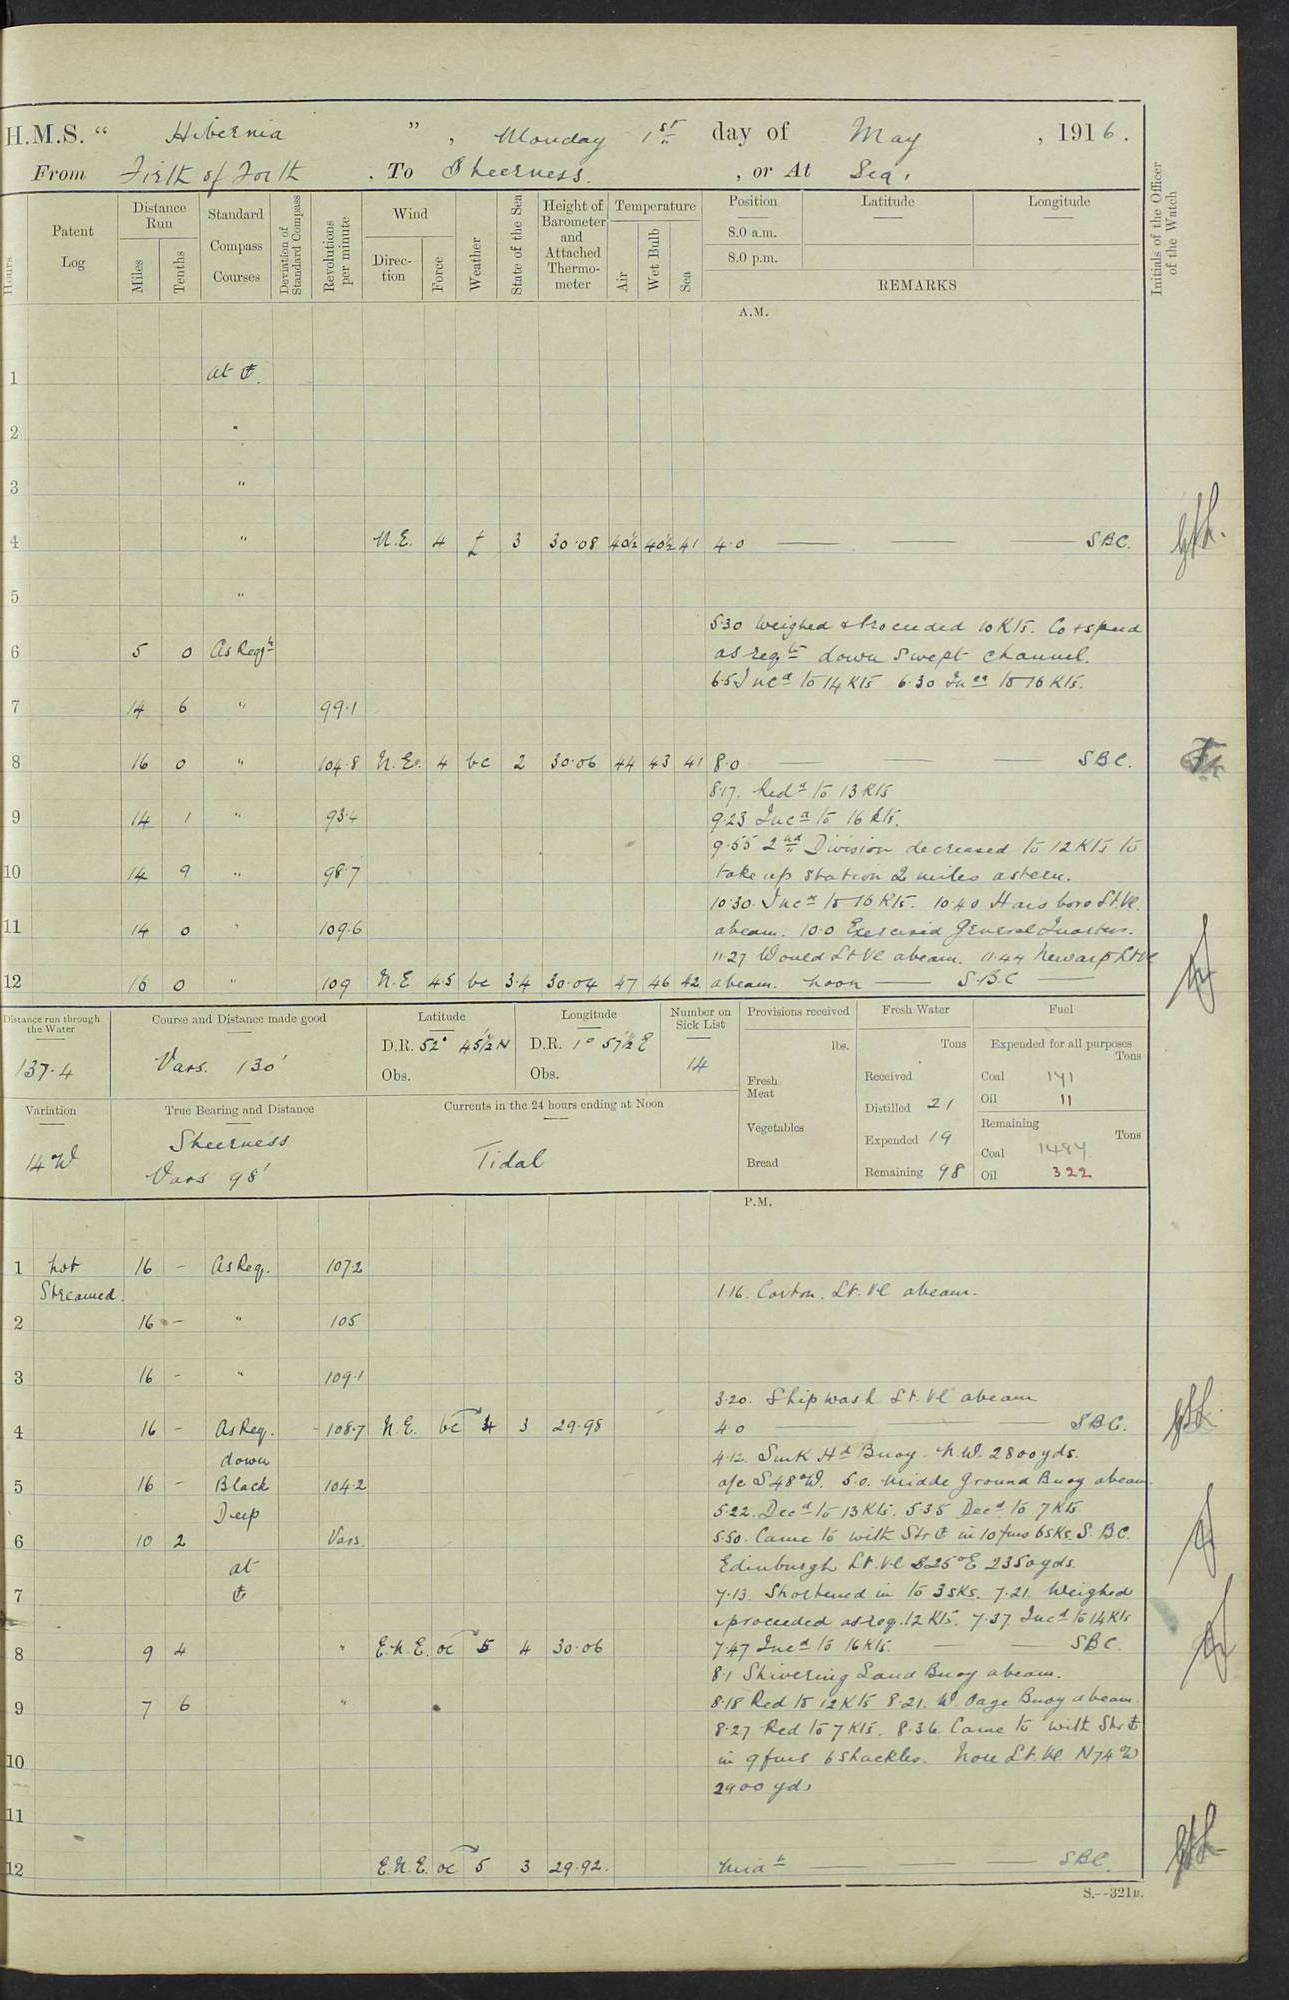 H.M.S. " Hibernia " , Monday 1st day of May , 1916.
From Firth of Forth . To Sheerness. , or At Sea.
Hours
Patent Log
Distance Run
Miles
Tenths
Standard Compass Courses
Deviation of Standard Compass
Revolutions per minute
Wind
Direction
Force
Weather
State of the Sea
Height of Barometer and Attached Thermometer
Temperature
Air
Wet Bulb
Sea
Position
Latitude
Longitude
8.0 a.m.
8.0 p.m.
REMARKS
Initials of the Officer of the Watch
A.M.
1 at ⚓.
2 "
3 "
4 " N.E. 4 3 30.08 40½ 40½ 41 4.0 SBC.
5 "
5.30 Weighed & Proceeded 10 Kts. Co & speed
6 5 0 As Reqte as reqte down Swept channel.
6.5 Incd to 14 Kts 6.30 Incd to 16 Kts.
7 14 6 " 99.1
8 16 0 " 104.8 N.E. 4 bc 2 30.06 44 43 41 8.0 SBC.
8.17. Redd to 13 Kts
9 14 1 " 93.4 9.23 Incd to 16 Kts.
9.55 2nd Division decreased to 12 Kts to
10 14 9 " 98.7 take up station 2 miles astern.
10.30. Incd to 16 Kts. 10.40 Haisboro Lt. Vl.
11 14 0 " 109.6 abeam. 10.0 Exercised General Quarters.
11.27 Would Lt Vl abeam. 11.44 Newarp Lt Vl
12 16 0 " 109 N.E 4 5 bc 3.4 30.04 47 46 42 abeam. Noon S.B.C
Distance run through the Water
137.4
Course and Distance made good
Vars. 130'
Latitude
D.R. 52° 45½' N
Obs.
Longitude
D.R. 1° 57½' E
Obs.
Number on Sick List
14
Provisions received
lbs.
Fresh Meat
Vegetables
Bread
Fresh Water
Tons
Received
Distilled 21
Expended 19
Remaining 98
Fuel
Expended for all purposes
Tons
Coal 141
Oil 11
Remaining
Tons
Coal 1484
Oil 322
Variation
14 W
True Bearing and Distance
Sheerness
Vars 98'
Currents in the 24 hours ending at Noon
Tidal
P.M.
1 Not 16 - As Req. 107.2
Streamed. 1.16. Corton. Lt. Vl abeam.
2 16 - " 105
3 16 - " 109.1
3.20. Shipwash Lt. Vl abeam
4 16 - As Req. 108.7 N.E. bc 4 3 29.98 4.0 SBC.
down 4.12. Sunk Hd Buoy. N.W. 2800 yds.
5 16 - Black 104.2 a/c S48°W. 5.0. Midde Ground Buoy abeam.
Deep 5.22. Decd to 13 Kts. 5.35 Decd to 7 Kts.
6 10 2 Vars. 5.50. Came to with Str ⚓ in 10 fms 6 SKs. S.BC.
at Edinburgh Lt. Vl S25°E 2350 yds.
7 ⚓ 7.13. Shortened in to 3 SKs. 7.21. Weighed
& proceeded as req. 12 Kts. 7.37. Incd to 14 Kts
8 9 4 " E.N.E. oc 5 4 30.06 7.47 Incd to 16 Kts. SBC.
8.1 Shivering Sand Buoy abeam.
9 7 6 " 8.18 Red to 12 Kts 8.21. W. Oaze Buoy abeam.
8.27 Red to 7 Kts. 8.36. Came to with Str ⚓
10 in 9 fms 6 shackles. Nore Lt. Vl. N74°W
2900 yds
11
12 E.N.E. oc 5 3 29.92. Midt SBC.
S.--321B.